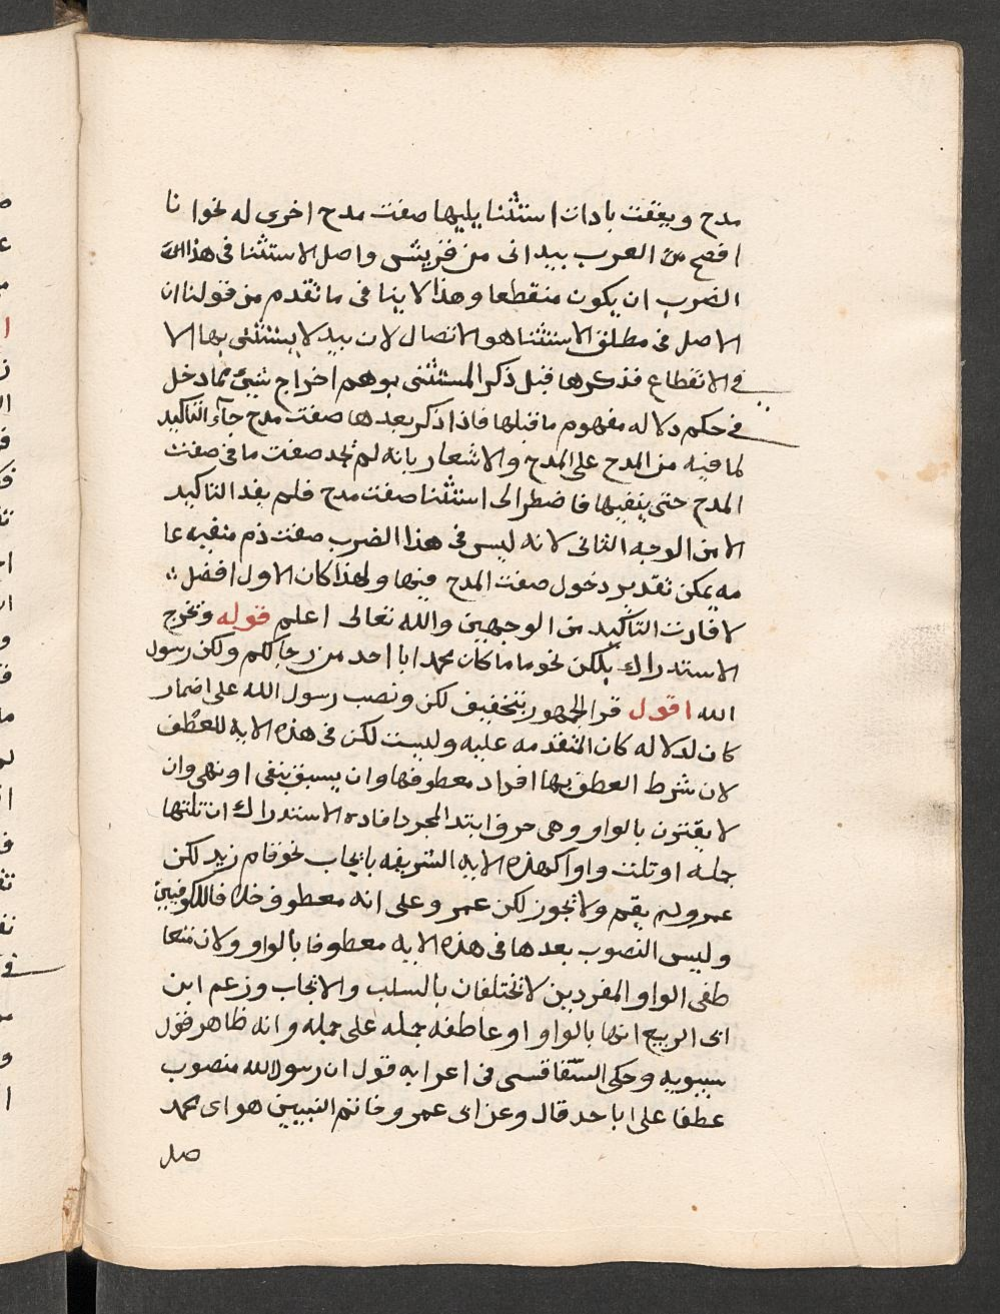 مدح ويعقت بادات استثنا يليها صفت مدح اخرى له نحو انا
افصح من العرب بيد انى من قريش واصل الاستثنا فى هذا
الضرب ان يكون منقطعا وهذا لا ينا فى ما تقدم من قولنا ان
الاصل فى مطلق الاستثنا هو الاتصال لان بيد لا يستثنى بها الا
فى الانقطاع فذكرها قبل ذكر المستثنى يوهم اخراج شيئ مما دخل
فى حكم دلاله مفهوم ما قبلها فاذا ذكر بعدها صفت مدح جاء التاكيد
لما فيه من المدح على المدح والاشعار بانه لم تجد صفت ما فى صفت
المدح حتى ينفيها فاضطر الى استثنا صفت مدح فلم يفد التاكيد
الا من الوجه الثانى لانه ليس فى هذا الضرب صفت ذم منفيه عا
مه يمكن تقدير دخول صفت المدح فيها ولهذا كان الاول افضل
لافادت التاكيد من الوجهين والله تعالى اعلم قوله وتخرج
الاستدراك بلكن نحو ما ما كان محمد ابا احد من رجالكم ولكن رسول
الله اقول قرا الجمهور بتخفيف لكن ونصب رسول الله على اضمار
كان لدلاله كان المتقدمه عليه وليست لكن فى هذه الايه للعطف
لان شرط العطف بها افراد معطوفها وان يسبق بنفى او نهى وان
لا يقترن بالواو وهى حرف ابتدا لمجرد افاده الاستدراك ان تلتها
جمله او تلت واوا كهذه الايه الشريفه بايجاب نحو قام زيد لكن
عمرو لم يقم ولا تجوز لكن عمر وعلى انه معطوف خلافا للكوفيين
وليس النصوب بعدها فى هذه الايه معطوفا بالواو ولان متعا
طفى الواو المفردين لا تختلفان بالسلب والايجاب وزعم ابن
ابى الربيع انها بالواو او عاطفه جمله على جمله وانه ظاهر قول
سيبويه وحكى السفاقسى فى اعرابه قول ان رسول الله منصوب
عطفا على ابا احد قال وعن ابى عمرو وخاتم النبيين هو اى محمد
صلـ